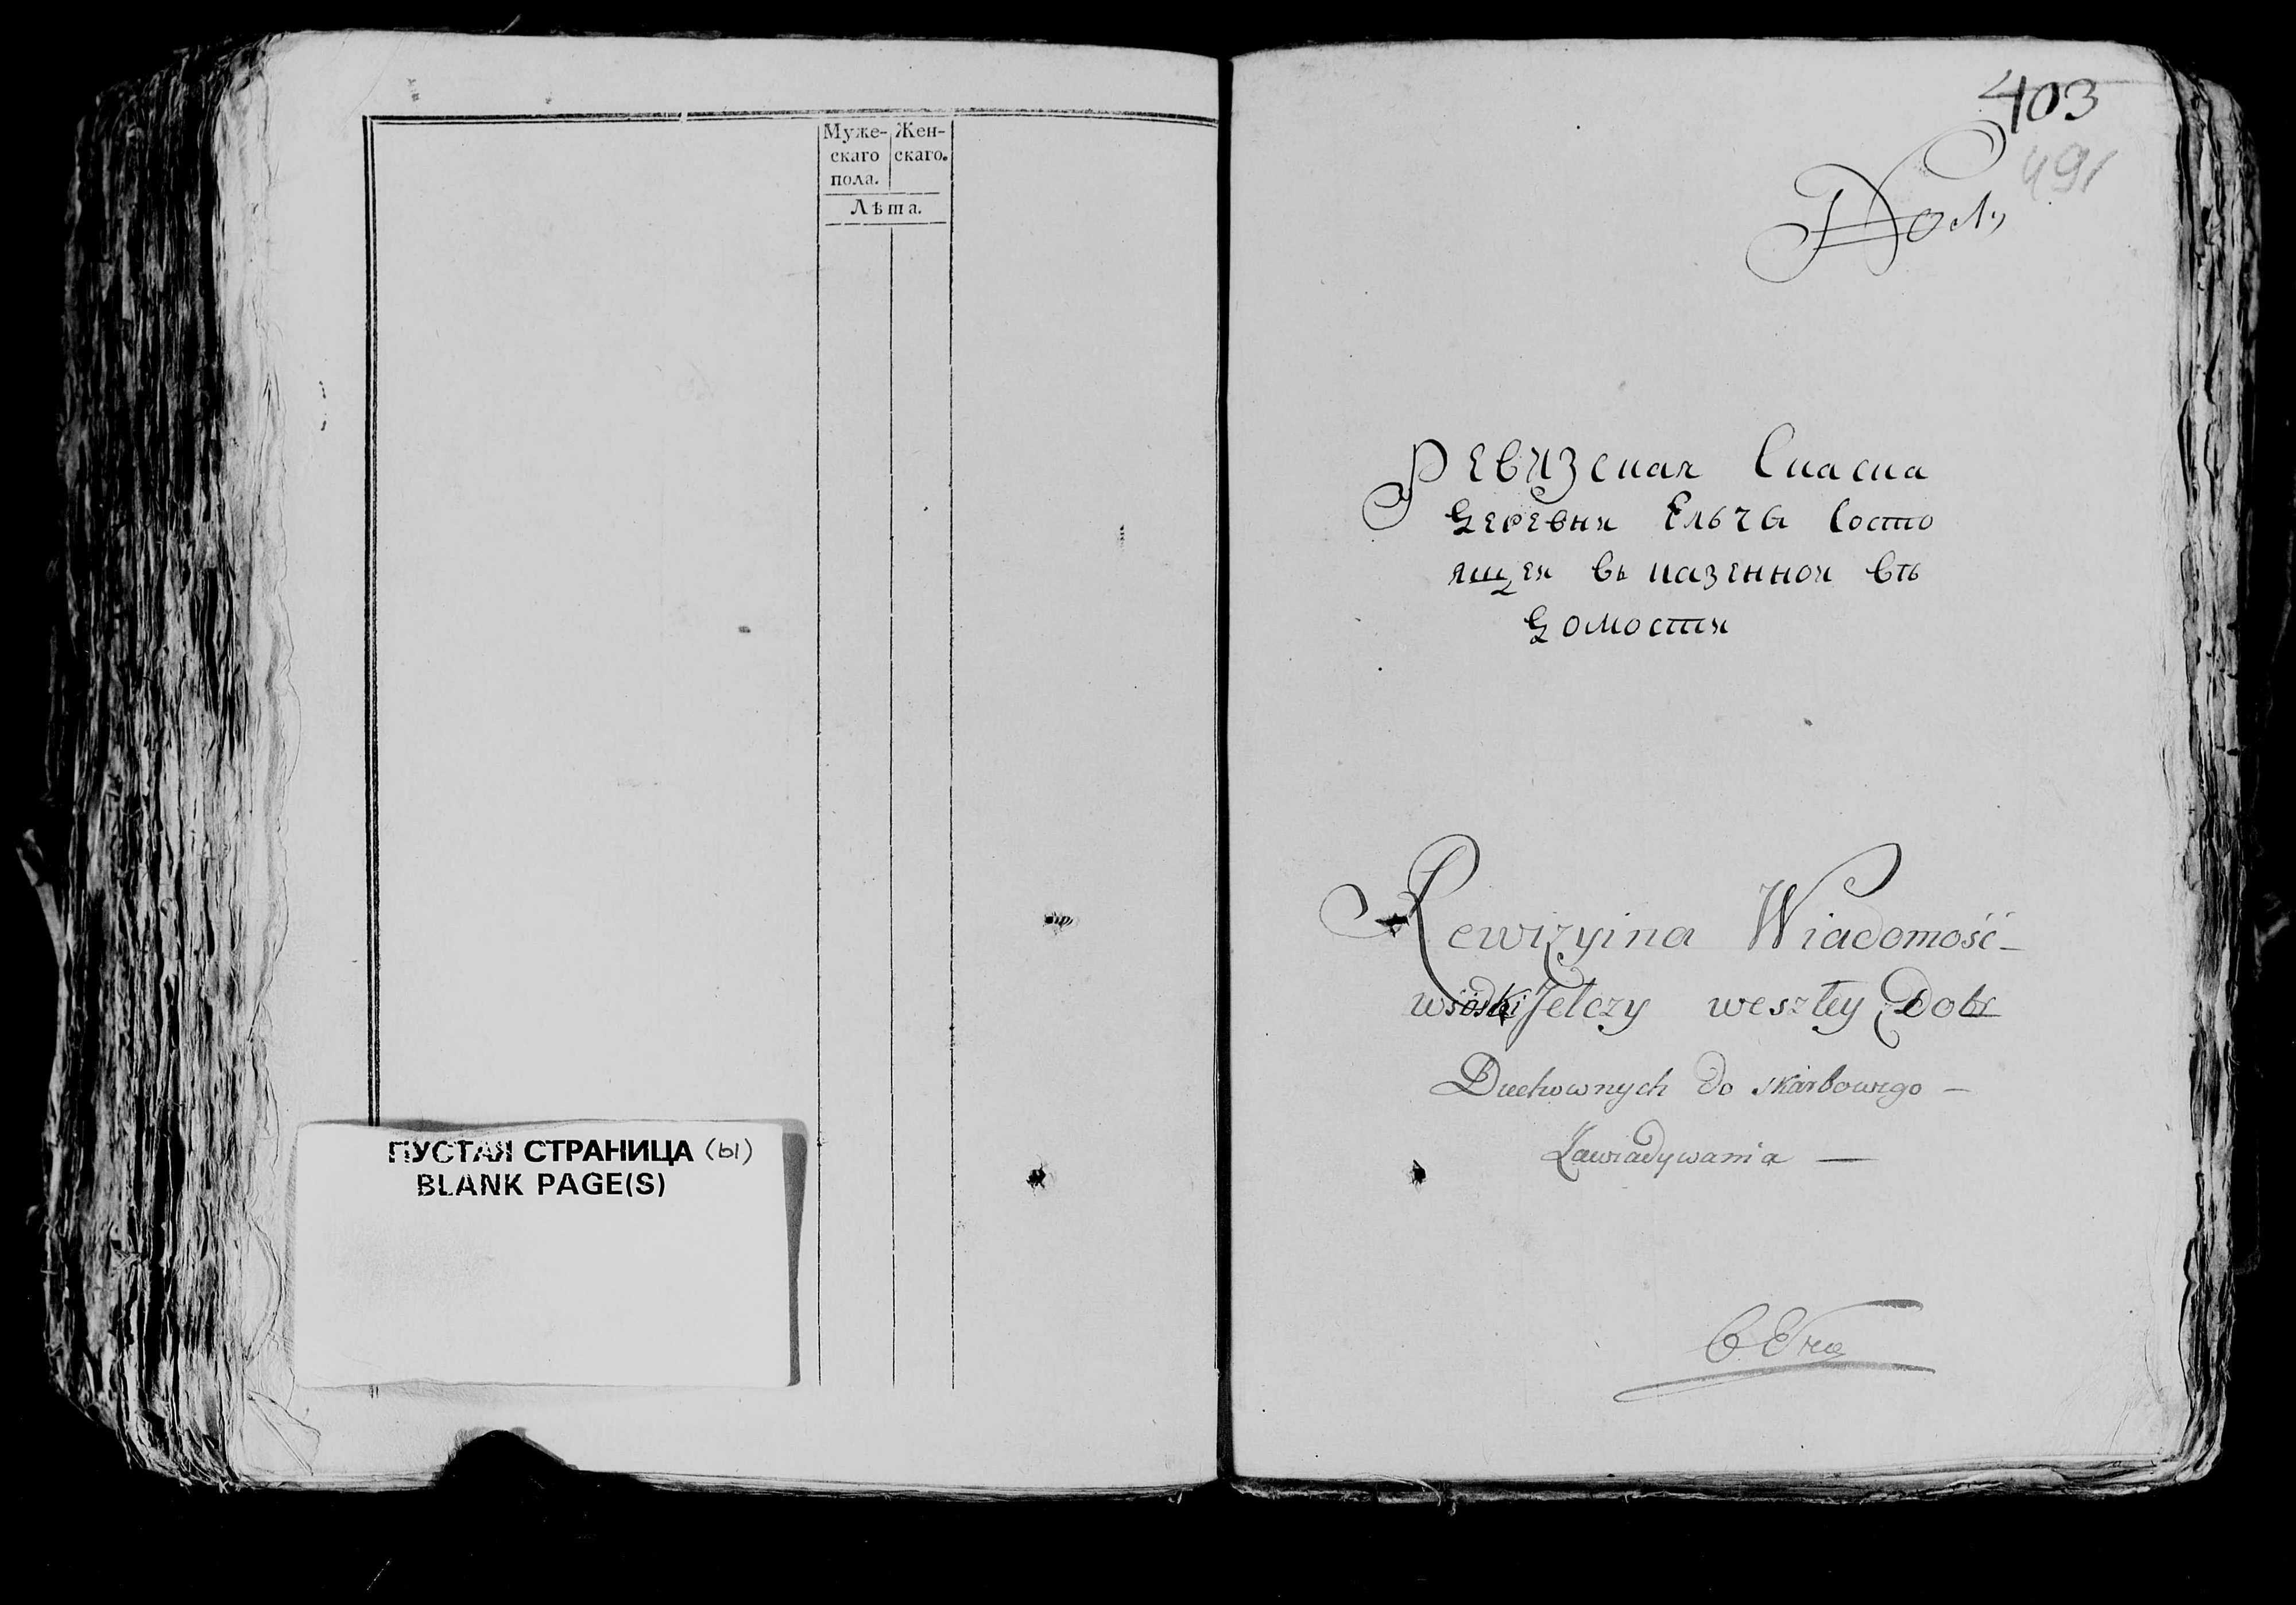 Муже- Жен-
скаго скаго.
пола.
Лѣта.
ПУСТАЯ СТРАНИЦА (ы)
BLANK PAGE(S)
403
491
Ревизская Сказка
деревни Ельча Состо
ящей въ казенной вѣ
домости
Rewizyina Wiadomość
wioski Jelczy weszłey Dobr
Duchownych do skarbowego
Zawiadywania